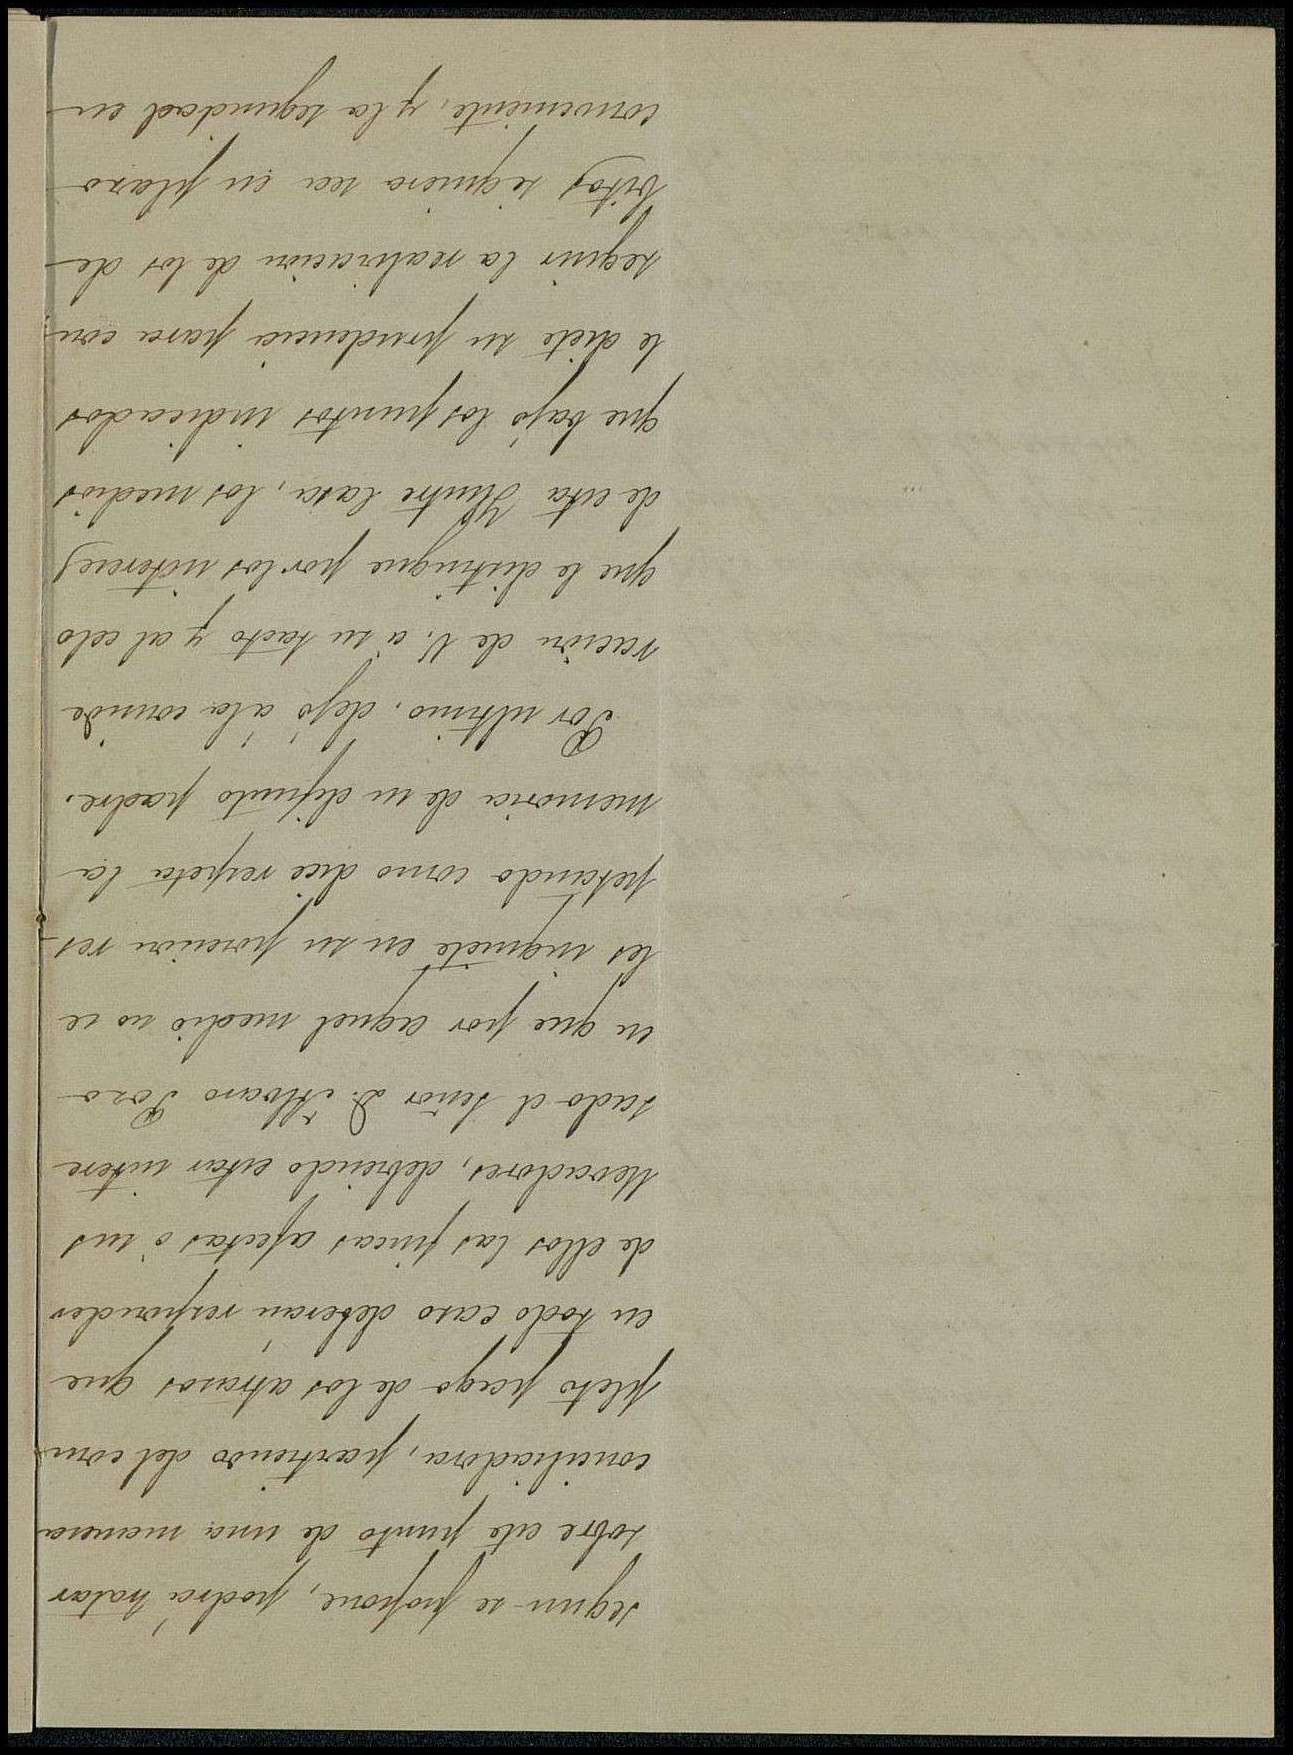 segun se propone, podrá tratar
sobre este punto de una manera
conciliadora, partiendo del com
pleto pago de los atrasos que
en todo caso deberán responder
de ellos las fincas afectas ó sus
llevadores, debiendo estar intere
sado el Señor D. Alvaro Pozo
en que por aquel medio no se
les inquiete en su posesion res-
petando como dice respeta la
memoria de su difunto padre.
Por ultimo, dejo á la conside
racion de V. a su tacto y al celo
que le distingue por los intereses
de esta Ilustre Casa, los medios
que bajo los puntos indicados
le dicte su prudencia para con
seguir la realizacion de los de
bitos siquiera sea en plazo
conveniente, y la seguridad en